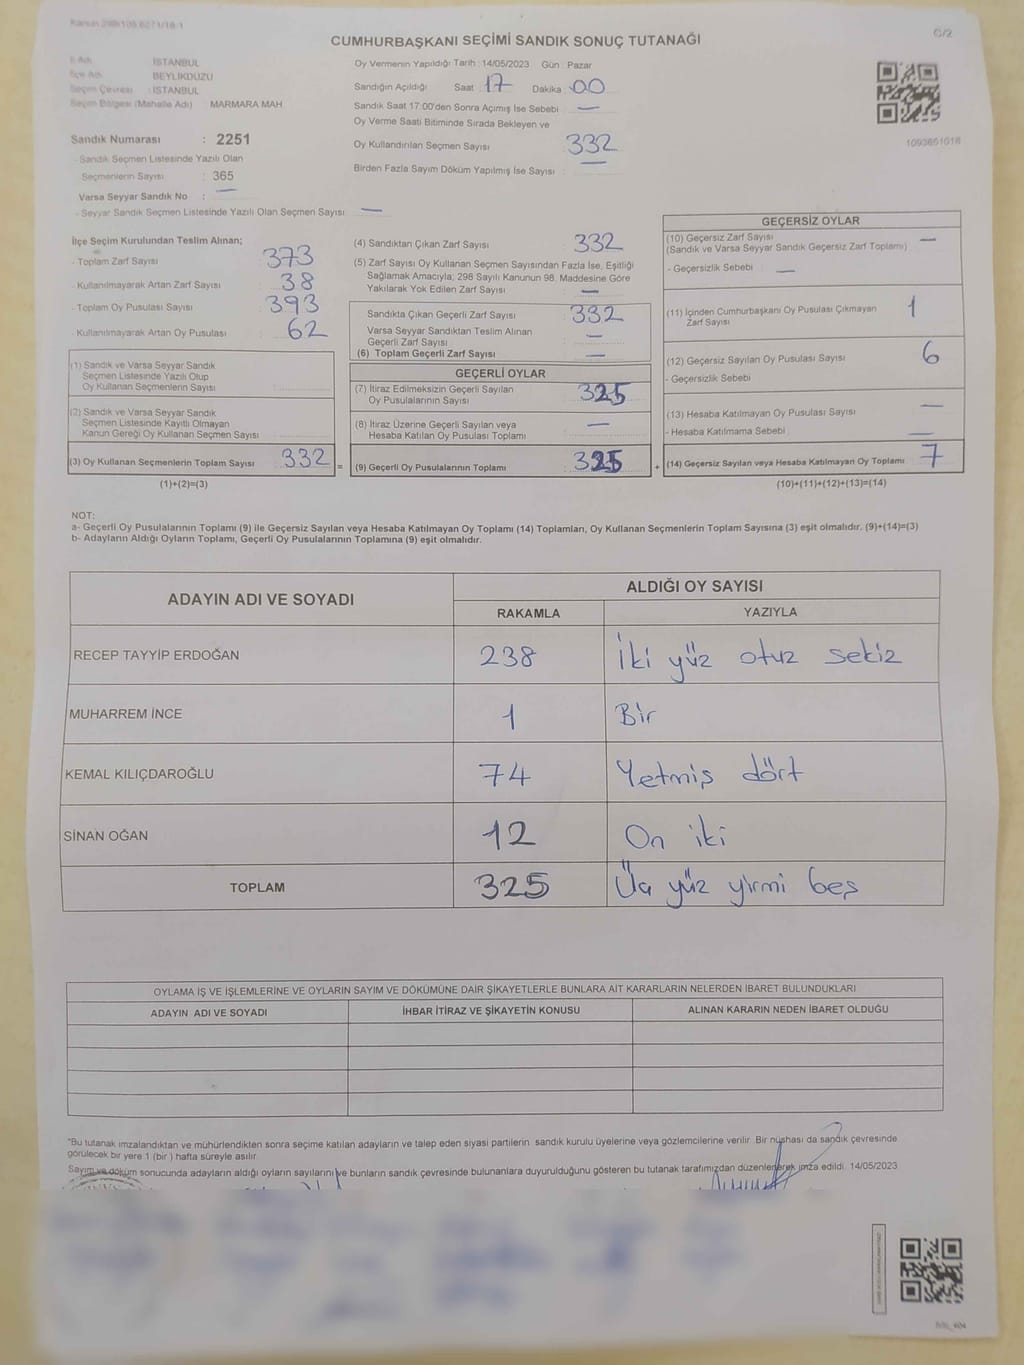 CUMHURBAŞKANI SEÇİMİ SANDIK SONUÇ TUTANAĞI
C/2
İl Adı : İSTANBUL
İlçe Adı : BEYLİKDÜZÜ
Seçim Çevresi : İSTANBUL
Seçim Bölgesi (Mahalle Adı) : MARMARA MAH
Sandık Numarası : 2251
- Sandık Seçmen Listesinde Yazılı Olan
Seçmenlerin Sayısı : 365
Varsa Seyyar Sandık No : —
- Seyyar Sandık Seçmen Listesinde Yazılı Olan Seçmen Sayısı : —
Oy Vermenin Yapıldığı Tarih : 14/05/2023 Gün : Pazar
Sandığın Açıldığı Saat : 17 Dakika : 00
Sandık Saat 17:00'den Sonra Açımış İse Sebebi : —
Oy Verme Saati Bitiminde Sırada Bekleyen ve
Oy Kullandırılan Seçmen Sayısı : 332
Birden Fazla Sayım Döküm Yapılmış İse Sayısı : —
1093651018
İlçe Seçim Kurulundan Teslim Alınan;
- Toplam Zarf Sayısı : 373
- Kullanılmayarak Artan Zarf Sayısı : 38
- Toplam Oy Pusulası Sayısı : 393
- Kullanılmayarak Artan Oy Pusulası : 62
(1) Sandık ve Varsa Seyyar Sandık
Seçmen Listesinde Yazılı Olup
Oy Kullanan Seçmenlerin Sayısı
(2) Sandık ve Varsa Seyyar Sandık
Seçmen Listesinde Kayıtlı Olmayan
Kanun Gereği Oy Kullanan Seçmen Sayısı
(3) Oy Kullanan Seçmenlerin Toplam Sayısı : 332 =
(1)+(2)=(3)
(4) Sandıktan Çıkan Zarf Sayısı : 332
(5) Zarf Sayısı Oy Kullanan Seçmen Sayısından Fazla İse, Eşitliği
Sağlamak Amacıyla, 298 Sayılı Kanunun 98. Maddesine Göre
Yakılarak Yok Edilen Zarf Sayısı : —
Sandıkta Çıkan Geçerli Zarf Sayısı : 332
Varsa Seyyar Sandıktan Teslim Alınan
Geçerli Zarf Sayısı : —
(6) Toplam Geçerli Zarf Sayısı : —
GEÇERLİ OYLAR
(7) İtiraz Edilmeksizin Geçerli Sayılan
Oy Pusulalarının Sayısı : 325
(8) İtiraz Üzerine Geçerli Sayılan veya
Hesaba Katılan Oy Pusulası Toplamı : —
(9) Geçerli Oy Pusulalarının Toplamı : 325 +
GEÇERSİZ OYLAR
(10) Geçersiz Zarf Sayısı : —
(Sandık ve Varsa Seyyar Sandık Geçersiz Zarf Toplamı)
- Geçersizlik Sebebi : —
(11) İçinden Cumhurbaşkanı Oy Pusulası Çıkmayan
Zarf Sayısı : 1
(12) Geçersiz Sayılan Oy Pusulası Sayısı : 6
- Geçersizlik Sebebi
(13) Hesaba Katılmayan Oy Pusulası Sayısı : —
- Hesaba Katılmama Sebebi : —
(14) Geçersiz Sayılan veya Hesaba Katılmayan Oy Toplamı : 7
(10)+(11)+(12)+(13)=(14)
NOT:
a- Geçerli Oy Pusulalarının Toplamı (9) ile Geçersiz Sayılan veya Hesaba Katılmayan Oy Toplamı (14) Toplamları, Oy Kullanan Seçmenlerin Toplam Sayısına (3) eşit olmalıdır. (9)+(14)=(3)
b- Adayların Aldığı Oyların Toplamı, Geçerli Oy Pusulalarının Toplamına (9) eşit olmalıdır.
ADAYIN ADI VE SOYADI
ALDIĞI OY SAYISI
RAKAMLA YAZIYLA
RECEP TAYYİP ERDOĞAN 238 İki yüz otuz sekiz
MUHARREM İNCE 1 Bir
KEMAL KILIÇDAROĞLU 74 Yetmiş dört
SİNAN OĞAN 12 On iki
TOPLAM 325 Üç yüz yirmi beş
OYLAMA İŞ VE İŞLEMLERİNE VE OYLARIN SAYIM VE DÖKÜMÜNE DAİR ŞİKAYETLERLE BUNLARA AİT KARARLARIN NELERDEN İBARET BULUNDUKLARI
ADAYIN ADI VE SOYADI İHBAR İTİRAZ VE ŞİKAYETİN KONUSU ALINAN KARARIN NEDEN İBARET OLDUĞU
"Bu tutanak imzalandıktan ve mühürlendikten sonra seçime katılan adayların ve talep eden siyasi partilerin sandık kurulu üyelerine veya gözlemcilerine verilir. Bir nüshası da sandık çevresinde
görülecek bir yere 1 (bir) hafta süreyle asılır.
Sayım ve döküm sonucunda adayların aldığı oyların sayılarını ve bunların sandık çevresinde bulunanlara duyurulduğunu gösteren bu tutanak tarafımızdan düzenlenerek imza edildi. 14/05/2023